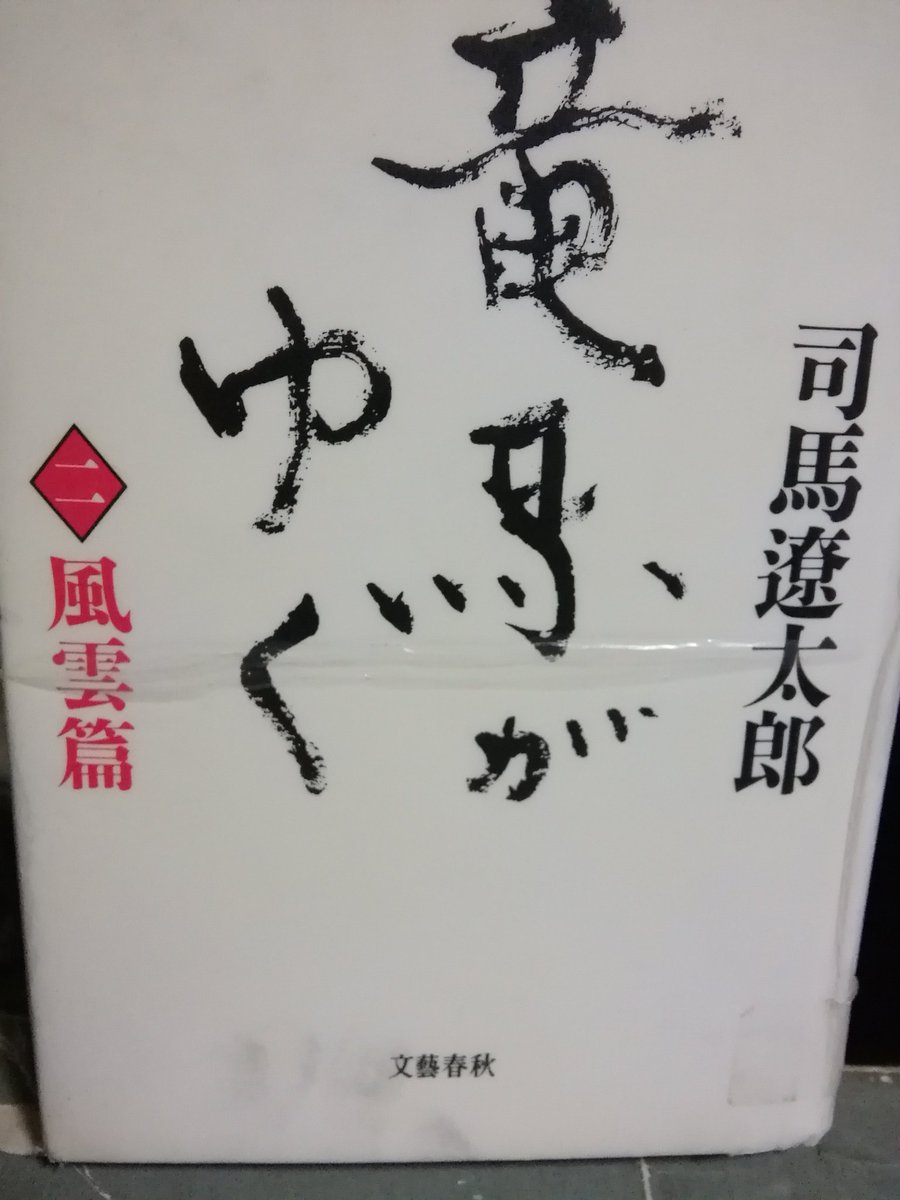 司馬遼太郎
竜馬が
ゆく
二 風雲篇
文藝春秋